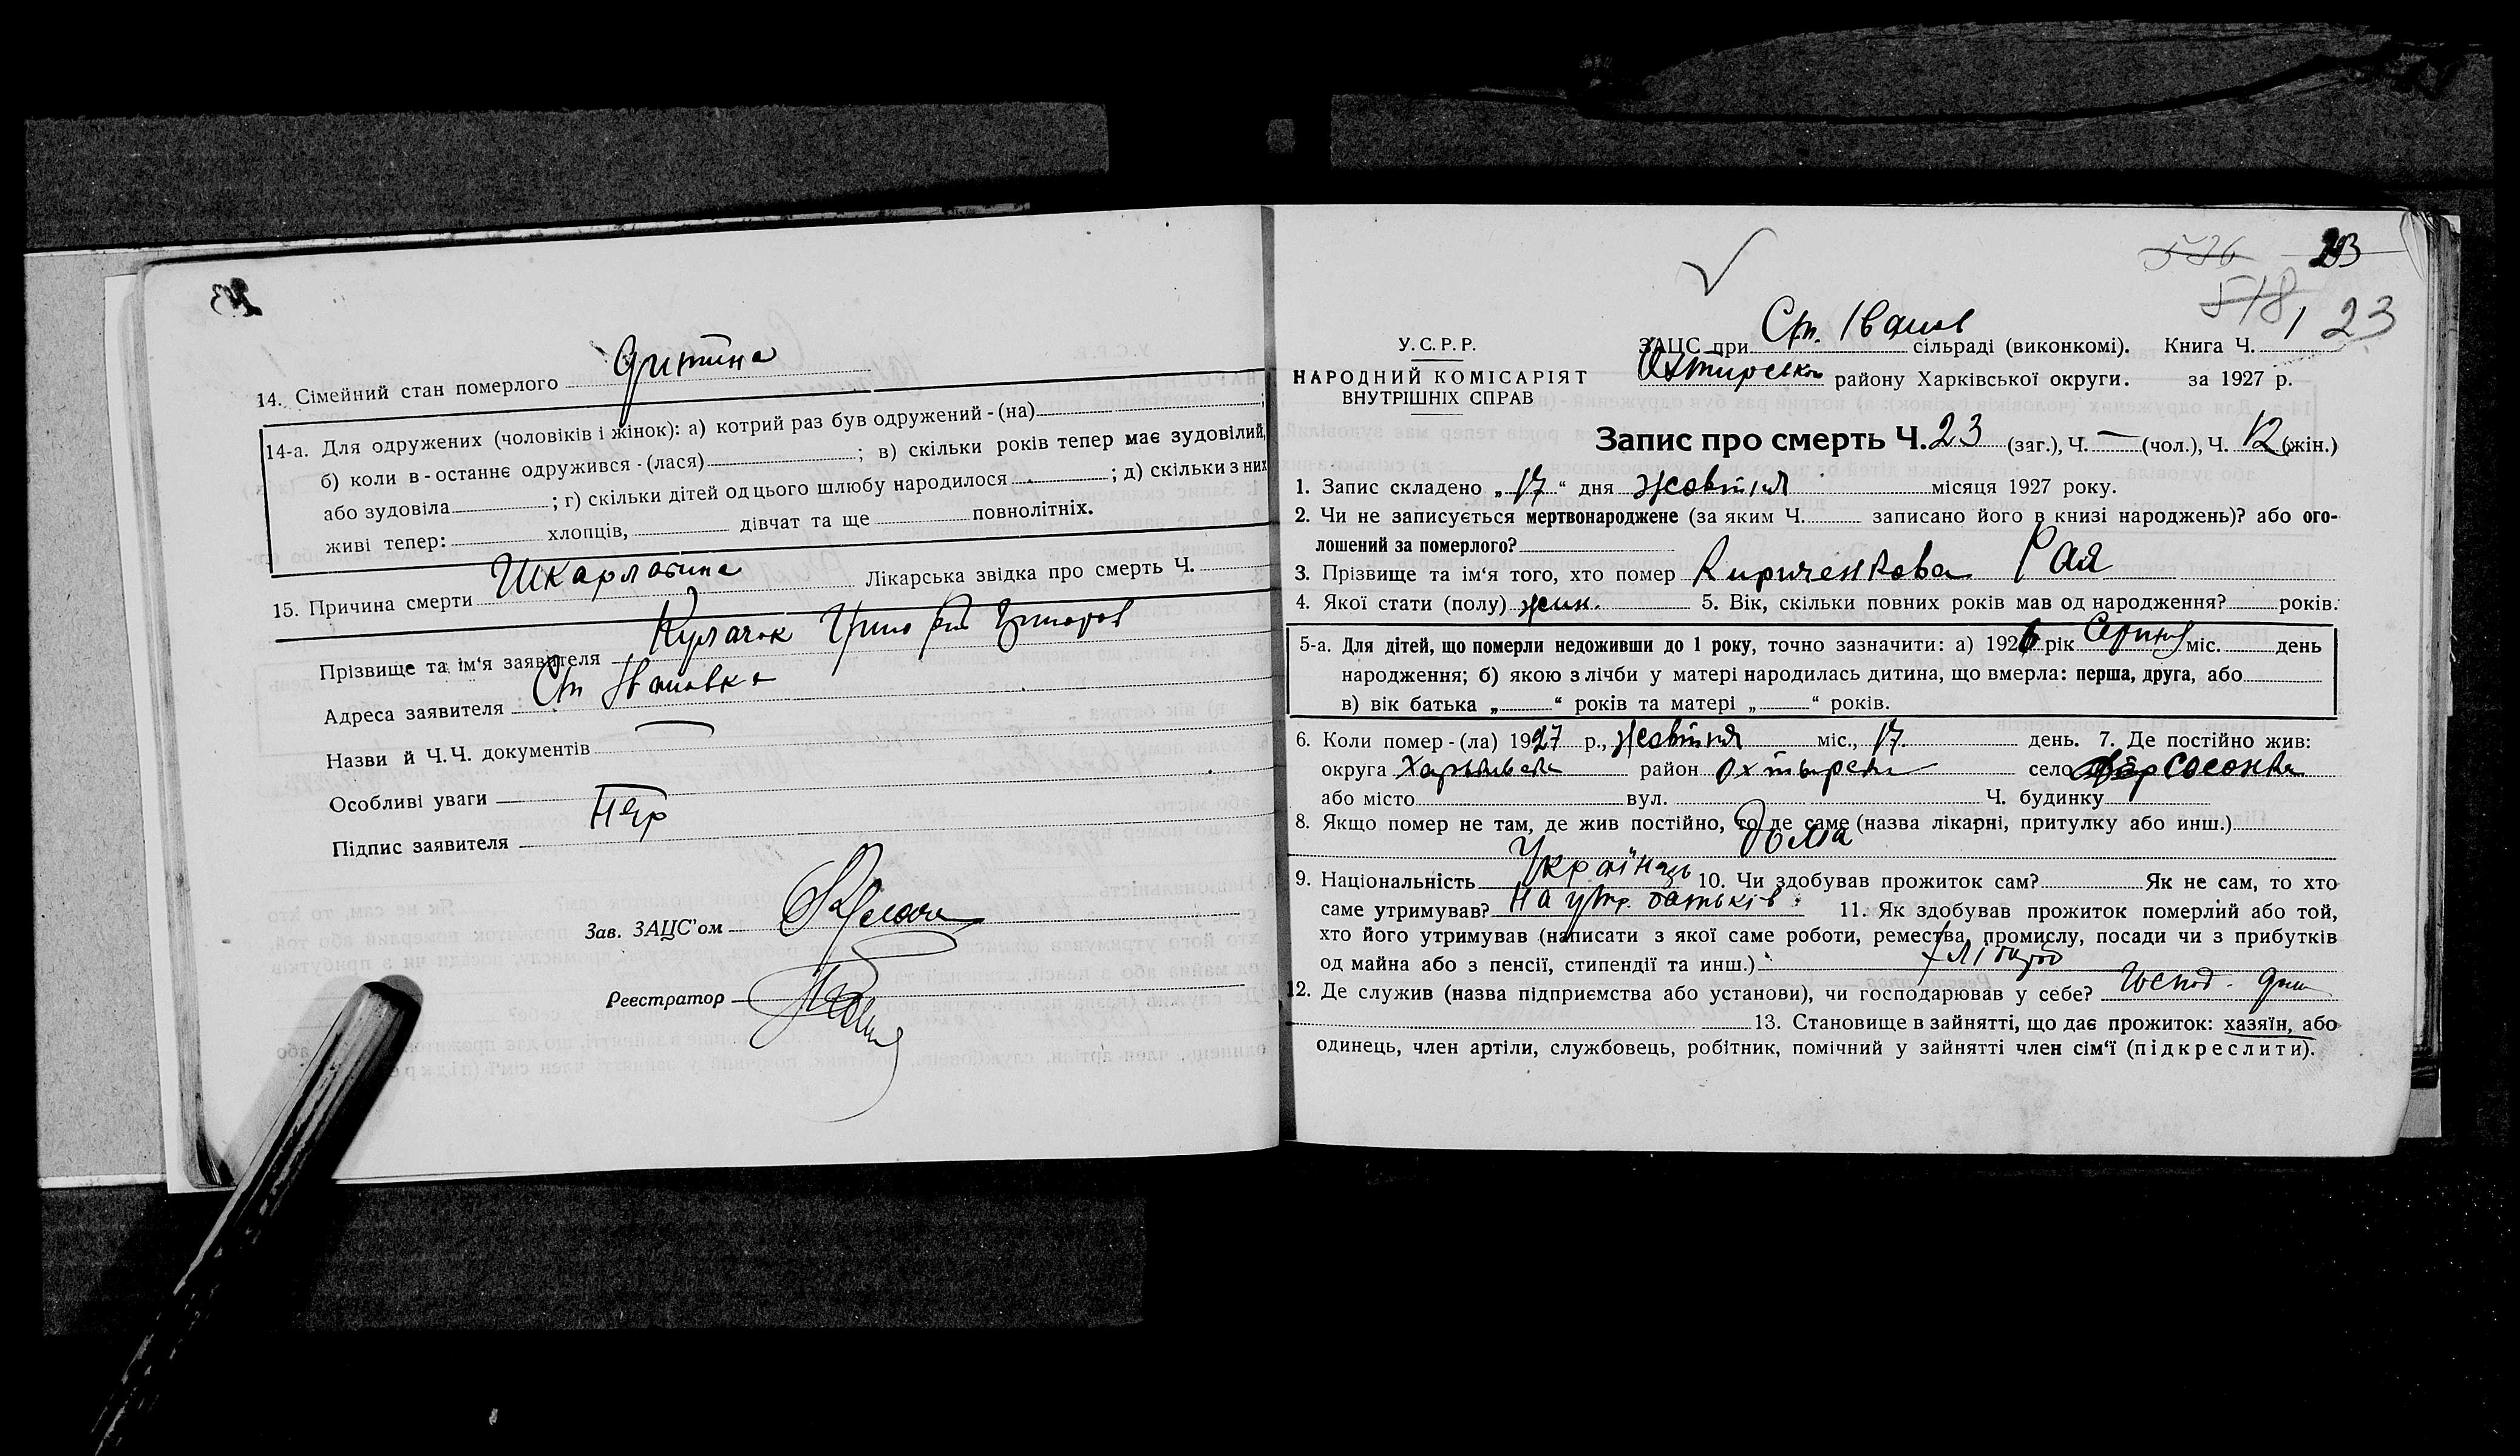 14. Сімейний стан померлого дитина
14-а. Для одружених (чоловіків і жінок): а) котрий раз був одружений - (на) ;
б) коли в-останнє одружився - (лася) ; в) скільки років тепер має зудовілий,
або зудовіла ; г) скільки дітей од цього шлюбу народилося ; д) скільки з них
живі тепер: хлопців, дівчат та ще повнолітніх.
15. Причина смерти Шкарлатина Лікарська звідка про смерть Ч.
Прізвище та ім‘я заявителя
Адреса заявителя Ст Івановка
Назви й Ч. Ч. документів —
Особливі уваги
Підпис заявителя
Зав. ЗАЦС’ом
Реєстратор
536 23
518
У. С. Р. Р.
НАРОДНИЙ КОМІСАРІЯТ
ВНУТРІШНІХ СПРАВ
ЗАЦС при Ст. Іванов сільраді (виконкомі). Книга Ч. 1 23
Охтирсько району Харківської округи. за 1927 р.
Запис про смерть Ч. 23 (заг.), Ч. — (чол.), Ч. 12 (жін.)
1. Запис складено „ 17 “ дня жовтня місяця 1927 року.
2. Чи не записується мертвонароджене (за яким Ч. записано його в книзі народжень)? або ого-
лошений за померлого?
3. Прізвище та ім‘я того, хто помер Кириченкова Рая
4. Якої стати (полу) жин. 5. Вік, скільки повних років мав од народження? років.
5-а. Для дітей, що померли недоживши до 1 року, точно зазначити: а) 1926 рік Серпня міс. день
народження; б) якою з лічби у матері народилась дитина, що вмерла: перша, друга, або
в) вік батька „ “ років та матері „ “ років.
6. Коли помер - (ла) 1927 р., жовтня міс., 17. день. 7. Де постійно жив:
округа район село
або місто вул. Ч. будинку
8. Якщо помер не там, де жив постійно, то де саме (назва лікарні, притулку або инш.)
дома
9. Національність Українець 10. Чи здобував прожиток сам? Як не сам, то хто
саме утримував? На утр. батьків 11. Як здобував прожиток померлий або той,
хто його утримував (написати з якої саме роботи, ремества, промислу, посади чи з прибутків
од майна або з пенсії, стипендії та инш.)
12. Де служив (назва підприємства або установи), чи господарював у себе?
13. Становище в зайнятті, що дає прожиток: хазяїн, або
одинець, член артіли, службовець, робітник, помічний у зайнятті член сім‘ї (підкреслити).